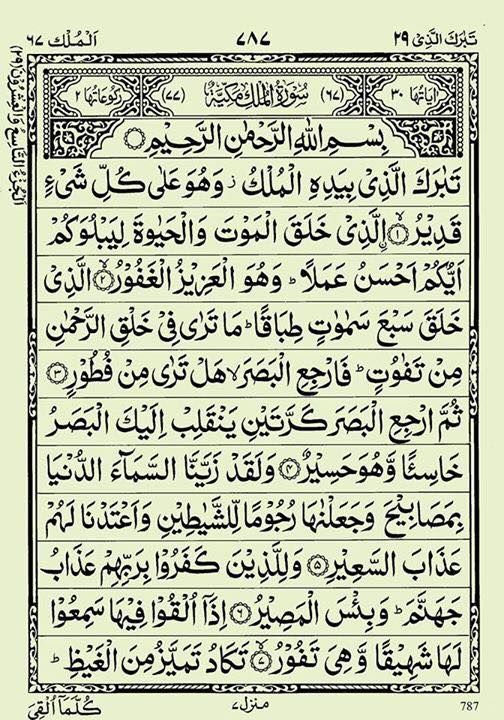 تَبٰرَكَ الَّذِىْ ٢٩ ٧٨٧ اَلْمُلْك ٦٧
اٰيَاتُهَا ٣٠ (٦٧) سُوْرَةُ الْمُلْكِ مَكِّيَّةٌ (٧٧) رُكُوْعَاتُهَا ٢
بِسْمِ اللّٰهِ الرَّحْمٰنِ الرَّحِيْمِ
تَبٰرَكَ الَّذِىْ بِيَدِهِ الْمُلْكُ ز وَهُوَ عَلٰى كُلِّ شَىْءٍ
قَدِيْرُۨ ۝١ الَّذِىْ خَلَقَ الْمَوْتَ وَالْحَيٰوةَ لِيَبْلُوَكُمْ
اَيُّكُمْ اَحْسَنُ عَمَلًا ؕ وَهُوَ الْعَزِيْزُ الْغَفُوْرُ ۝٢ الَّذِىْ
خَلَقَ سَبْعَ سَمٰوٰتٍ طِبَاقًا ؕ مَا تَرٰى فِىْ خَلْقِ الرَّحْمٰنِ
مِنْ تَفٰوُتٍ ؕ فَارْجِعِ الْبَصَرَ ۙ هَلْ تَرٰى مِنْ فُطُوْرٍ ۝٣
ثُمَّ ارْجِعِ الْبَصَرَ كَرَّتَيْنِ يَنْقَلِبْ اِلَيْكَ الْبَصَرُ
خَاسِئًا وَّهُوَ حَسِيْرٌ ۝٤ وَلَقَدْ زَيَّنَّا السَّمَآءَ الدُّنْيَا
بِمَصَابِيْحَ وَجَعَلْنٰهَا رُجُوْمًا لِّلشَّيٰطِيْنِ وَاَعْتَدْنَا لَهُمْ
عَذَابَ السَّعِيْرِ ۝٥ وَلِلَّذِيْنَ كَفَرُوْا بِرَبِّهِمْ عَذَابُ
جَهَنَّمَ ؕ وَبِئْسَ الْمَصِيْرُ ۝٦ اِذَآ اُلْقُوْا فِيْهَا سَمِعُوْا
لَهَا شَهِيْقًا وَّهِىَ تَفُوْرُ ۝٧ تَكَادُ تَمَيَّزُ مِنَ الْغَيْظِ ؕ
787 منزل ٧ كُلَّمَآ اُلْقِىَ
اَلْجُزْءُ التَّاسِعُ وَالْعِشْرُوْنَ (٢٩)